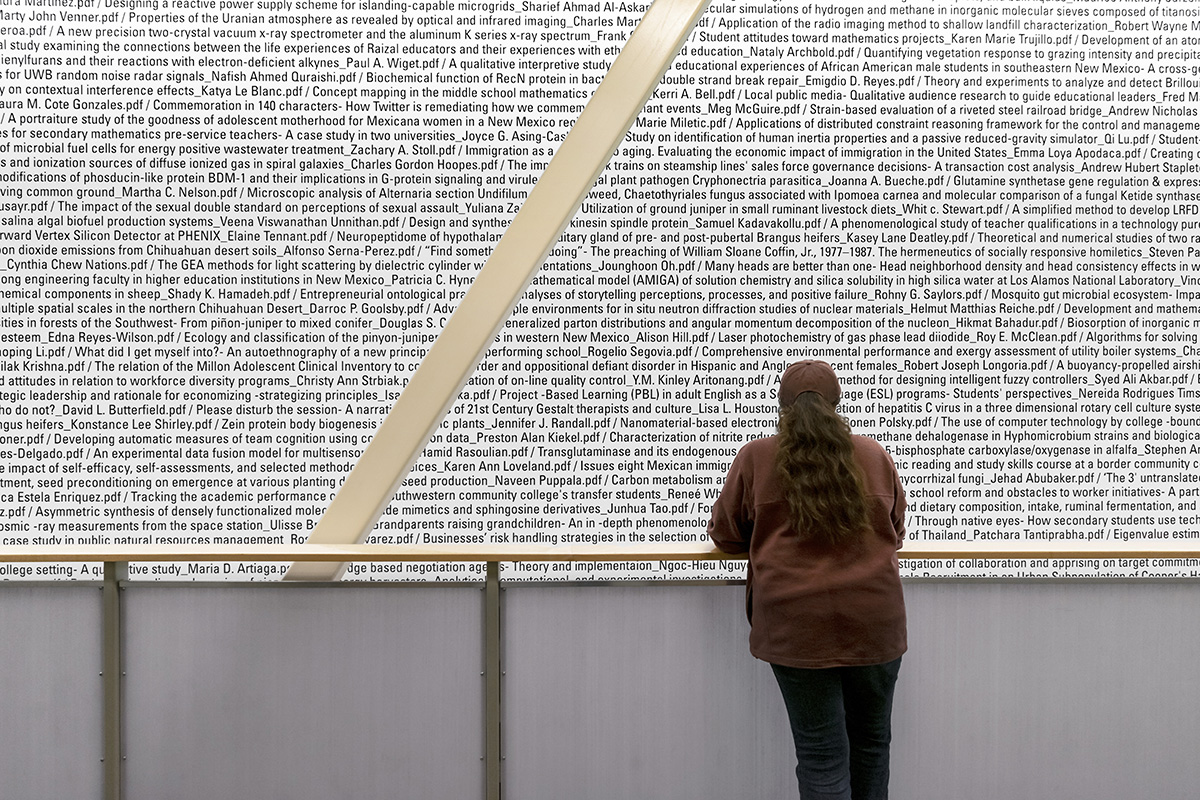 Martinez.pdf / Designing a reactive power supply scheme for islanding-capable microgrids_Sharief Ahmad Al-Askar cular simulations of hydrogen and methane in inorganic molecular sieves composed of
Marty John Venner.pdf / Properties of the Uranian atmosphere as revealed by optical and infrared imaging_Charles Mart / Application of the radio imaging method to shallow landfill characterization_Robert Wayne M
eroa.pdf / A new precision two-crystal vacuum x-ray spectrometer and the aluminum K series x-ray spectrum_Frank / Student attitudes toward mathematics projects_Karen Marie Trujillo.pdf / Development of an
al study examining the connections between the life experiences of Raizal educators and their experiences with eth education_Nataly Archbold.pdf / Quantifying vegetation response to grazing intensity and precipita
ienylfurans and their reactions with electron-deficient alkynes_Paul A. Wiget.pdf / A qualitative interpretive study educational experiences of African American male students in southeastern New Mexico- A cross-g
s for UWB random noise radar signals_Nafish Ahmed Quraishi.pdf / Biochemical function of RecN protein in bac double strand break repair_Emigdio D. Reyes.pdf / Theory and experiments to analyze and detect Brillou
y on contextual interference effects_Katya Le Blanc.pdf / Concept mapping in the middle school mathematics Kerri A. Bell.pdf / Local public media- Qualitative audience research to guide educational leaders_Fred M
aura M. Cote Gonzales.pdf / Commemoration in 140 characters- How Twitter is remediating how we commem ant events_Meg McGuire.pdf / Strain-based evaluation of a riveted steel railroad bridge_Andrew Nicholas
/ A portraiture study of the goodness of adolescent motherhood for Mexicana women in a New Mexico Marie Miletic.pdf / Applications of distributed constraint reasoning framework for the control and managem
es for secondary mathematics pre-service teachers- A case study in two universities_Joyce G. Asing-Cas Study on identification of human inertia properties and a passive reduced-gravity simulator_Qi Lu.pdf / Student-
of microbial fuel cells for energy positive wastewater treatment_Zachary A. Stoll.pdf / Immigration as a aging. Evaluating the economic impact of immigration in the United States_Emma Loya Apodaca.pdf / Creating
s and ionization sources of diffuse ionized gas in spiral galaxies_Charles Gordon Hoopes.pdf / The im k trains on steamship lines' sales force governance decisions- A transaction cost analysis_Andrew Hubert Staple
modifications of phosducin-like protein BDM-1 and their implications in G-protein signaling and virule gal plant pathogen Cryphonectria parasitica_Joanna A. Bueche.pdf / Glutamine synthetase gene regulation & expres
ving common ground_Martha C. Nelson.pdf / Microscopic analysis of Alternaria section Undifilum weed, Chaetothyriales fungus associated with Ipomoea carnea and molecular comparison of a fungal Ketide synthase
usayr.pdf / The impact of the sexual double standard on perceptions of sexual assault_Yuliana Za Utilization of ground juniper in small ruminant livestock diets_Whit c. Stewart.pdf / A simplified method to develop LRFD
salina algal biofuel production systems_Veena Viswanathan Unnithan.pdf / Design and synthe kinesin spindle protein_Samuel Kadavakollu.pdf / A phenomenological study of teacher qualifications in a technology
rward Vertex Silicon Detector at PHENIX_Elaine Tennant.pdf / Neuropeptidome of hypothalam uitary gland of pre- and post-pubertal Brangus heifers_Kasey Lane Deatley.pdf / Theoretical and numerical studies of two
on dioxide emissions from Chihuahuan desert soils_Alfonso Serna-Perez.pdf / "Find someth doing"- The preaching of William Sloane Coffin, Jr., 1977–1987. The hermeneutics of socially responsive homiletics_Steven Pa
_Cynthia Chew Nations.pdf / The GEA methods for light scattering by dielectric cylinder w entations_Jounghoon Oh.pdf / Many heads are better than one- Head neighborhood density and head consistency effects in
ong engineering faculty in higher education institutions in New Mexico_Patricia C. Hyne athematical model (AMIGA) of solution chemistry and silica solubility in high silica water at Los Alamos National Laboratory_Vin
hemical components in sheep_Shady K. Hamadeh.pdf / Entrepreneurial ontological pra nalyses of storytelling perceptions, processes, and positive failure_Rohny G. Saylors.pdf / Mosquito gut microbial ecosystem- Impa
ultiple spatial scales in the northern Chihuahuan Desert_Darroc P. Goolsby.pdf / Adv ple environments for in situ neutron diffraction studies of nuclear materials_Helmut Matthias Reiche.pdf / Development and mathema
sities in forests of the Southwest- From piñon-juniper to mixed conifer_Douglas S. C eneralized parton distributions and angular momentum decomposition of the nucleon_Hikmat Bahadur.pdf / Biosorption of inorganic
esteem_Edna Reyes-Wilson.pdf / Ecology and classification of the pinyon-juniper s in western New Mexico_Alison Hill.pdf / Laser photochemistry of gas phase lead diiodide_Roy E. McClean.pdf / Algorithms for solving
aoping Li.pdf / What did I get myself into?- An autoethnography of a new princip performing school_Rogelio Segovia.pdf / Comprehensive environmental performance and exergy assessment of utility boiler systems_Chi
ilak Krishna.pdf / The relation of the Millon Adolescent Clinical Inventory to co order and oppositional defiant disorder in Hispanic and Anglo cent females_Robert Joseph Longoria.pdf / A buoyancy-propelled airsh
d attitudes in relation to workforce diversity programs_Christy Ann Strbiak.p ation of on-line quality control_Y.M. Kinley Aritonang.pdf / A method for designing intelligent fuzzy controllers_Syed Ali Akbar.pdf /
tegic leadership and rationale for economizing -strategizing principles_Isa ka.pdf / Project -Based Learning (PBL) in adult English as a S age (ESL) programs- Students' perspectives_Nereida Rodrigues Tims
ho do not?_David L. Butterfield.pdf / Please disturb the session- A narrati of 21st Century Gestalt therapists and culture_Lisa L. Houston ation of hepatitis C virus in a three dimensional rotary cell culture syste
ngus heifers_Konstance Lee Shirley.pdf / Zein protein body biogenesis i c plants_Jennifer J. Randall.pdf / Nanomaterial-based electroni onen Polsky.pdf / The use of computer technology by college -bound
oner.pdf / Developing automatic measures of team cognition using co on data_Preston Alan Kiekel.pdf / Characterization of nitrite methane dehalogenase in Hyphomicrobium strains and biologica
es-Delgado.pdf / An experimental data fusion model for multisenso Hamid Rasoulian.pdf / Transglutaminase and its endogenous 5-bisphosphate carboxylase/oxygenase in alfalfa_Stephen
e impact of self-efficacy, self-assessments, and selected methods ices_Karen Ann Loveland.pdf / Issues eight Mexican immig mic reading and study skills course at a border community c
tment, seed preconditioning on emergence at various planting d seed production_Naveen Puppala.pdf / Carbon metabolism ycorrhizal fungi_Jehad Abubaker.pdf / "The 3' untranslated
ca Estela Enriquez.pdf / Tracking the academic performance uthwestern community college's transfer students_Reneé Wh school reform and obstacles to worker initiatives- A part
z.pdf / Asymmetric synthesis of densely functionalized mole de mimetics and sphingosine derivatives_Junhua Tao.pdf / For and dietary composition, intake, ruminal fermentation, and
osmic -ray measurements from the space station_Ulisse B randparents raising grandchildren- An in -depth phenomenolo / Through native eyes- How secondary students use tech
case study in public natural resources management_Ros varez.pdf / Businesses' risk handling strategies in the selection o of Thailand_Patchara Tantiprabha.pdf / Eigenvalue estim
ollege setting- A qu tative study_Maria D. Artiaga.p dge based negotiation agents- Theory and implementaion_Ngoc-Hieu Nguy stigation of collaboration and apprising on target commitm